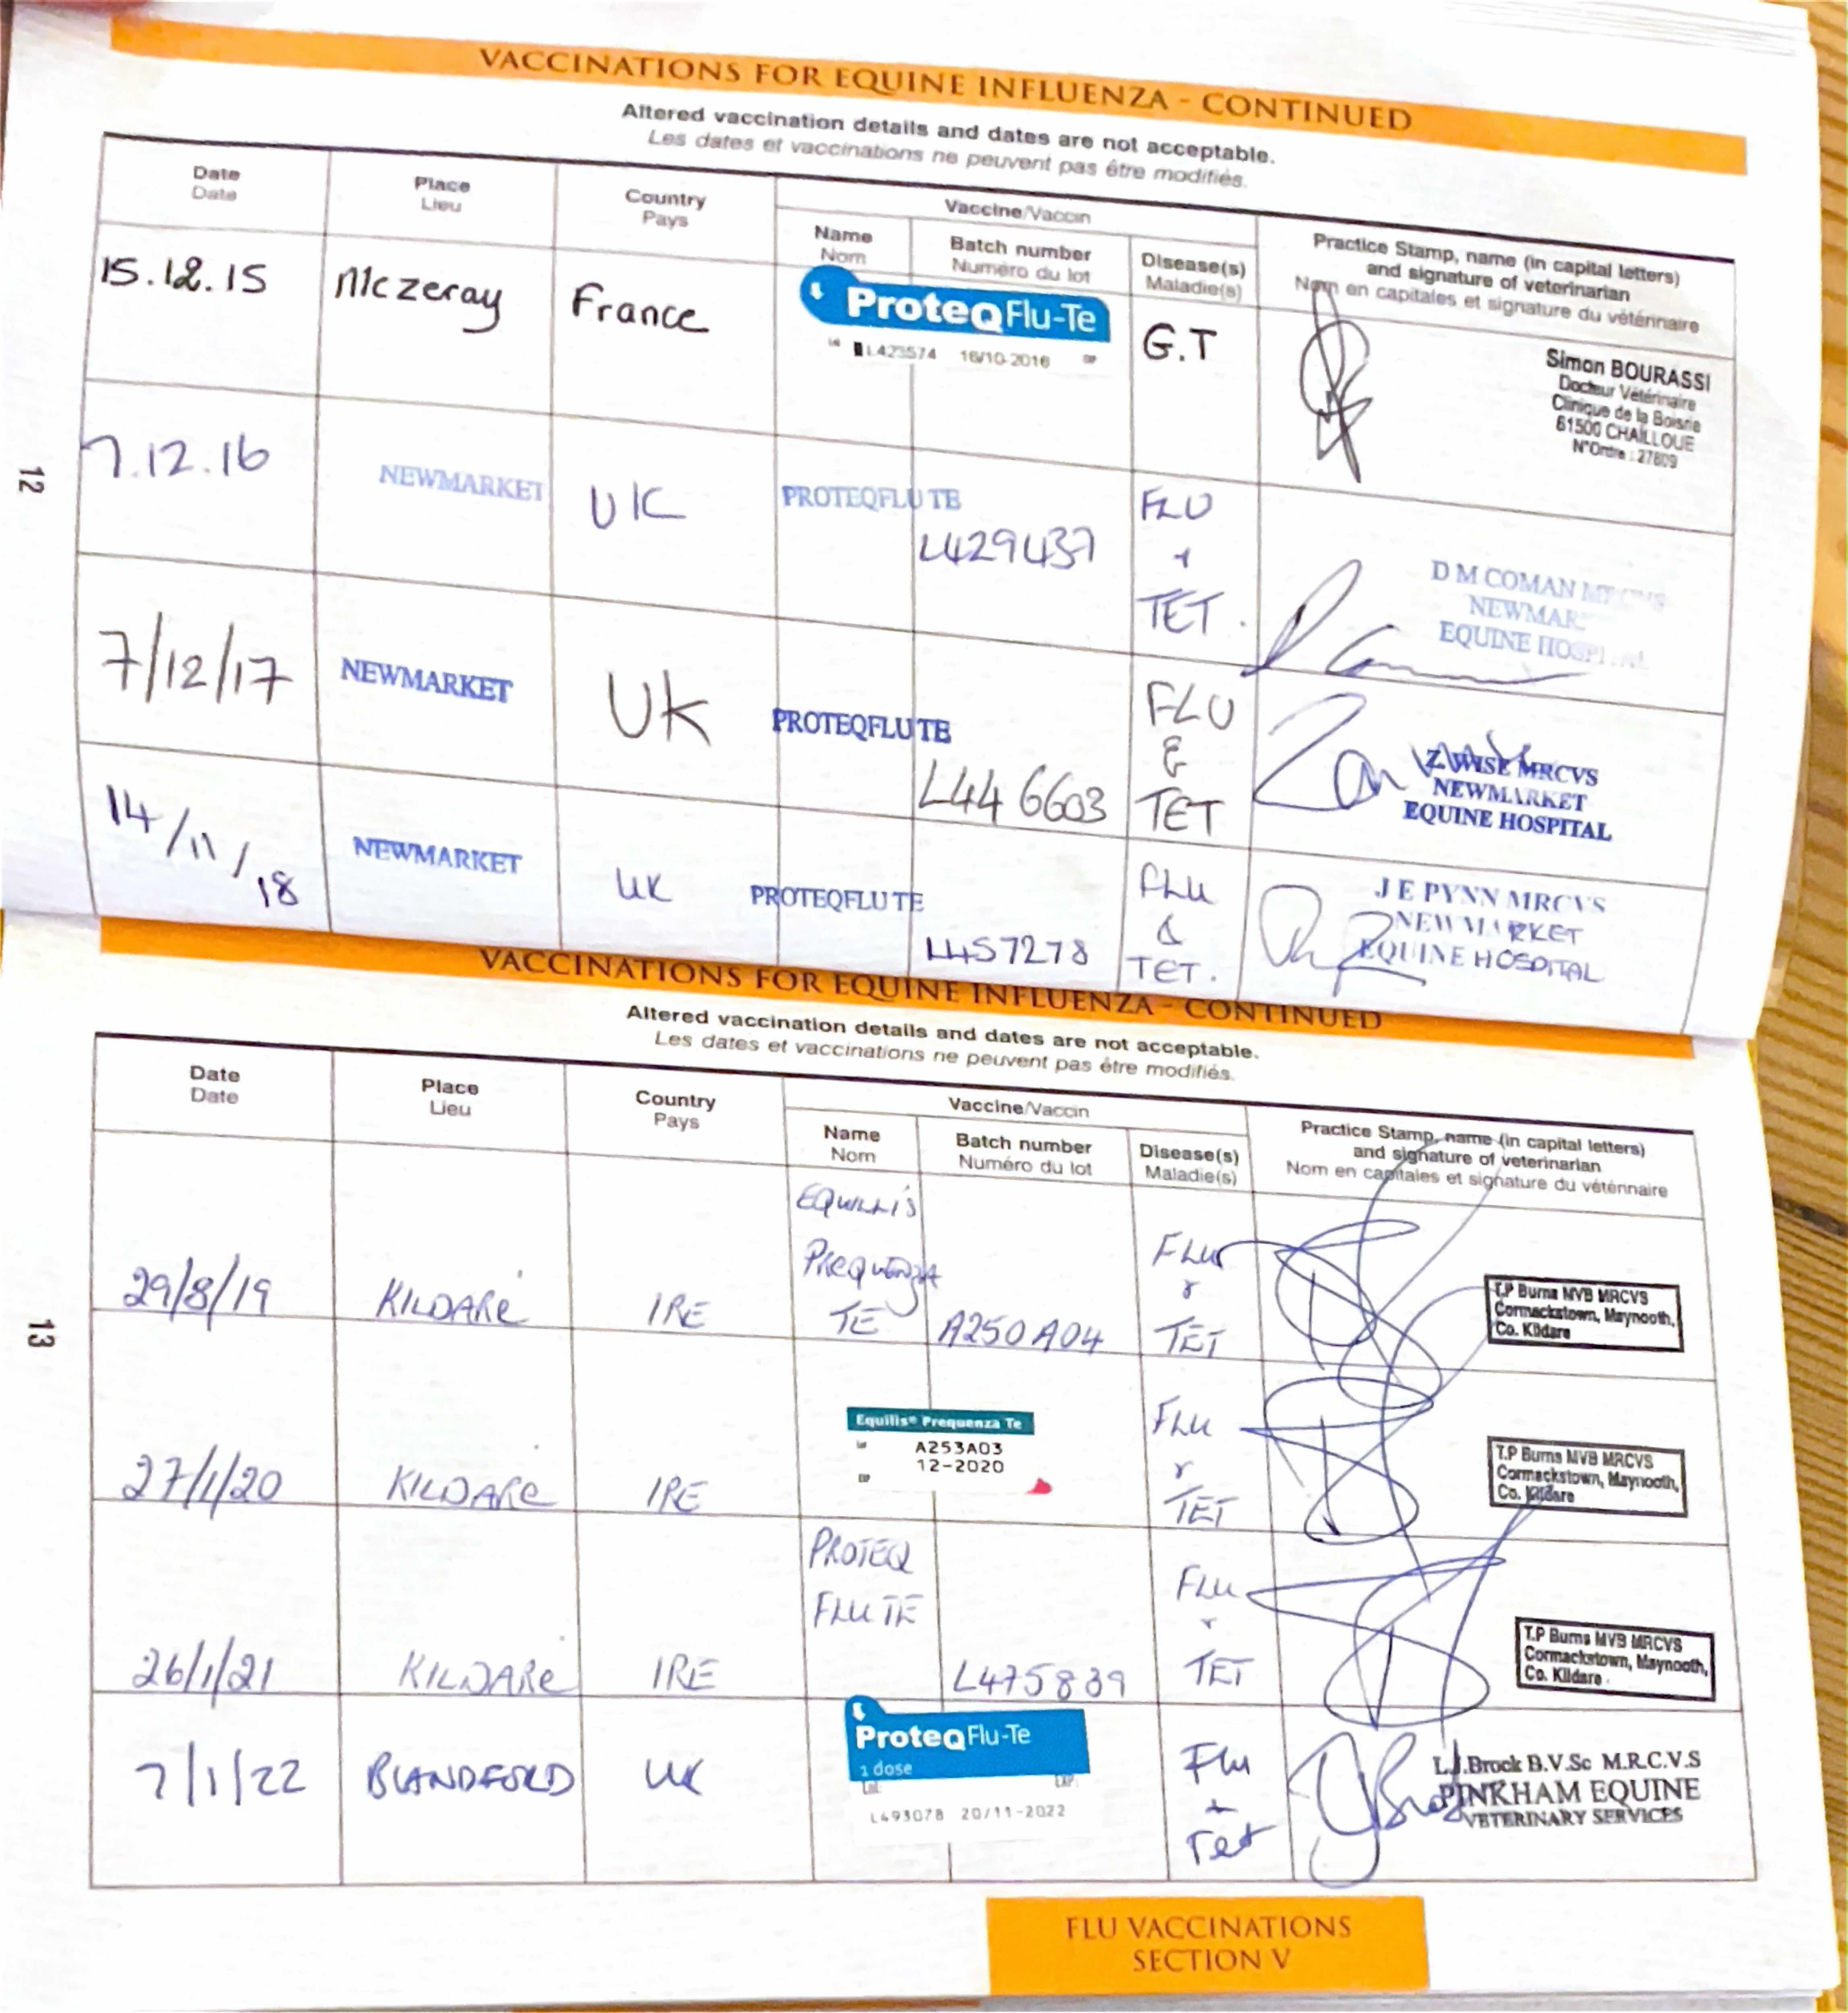 VACCINATIONS FOR EQUINE INFLUENZA - CONTINUED
Altered vaccination details and dates are not acceptable.
Les dates et vaccinations ne peuvent pas être modifiés.
Date
Date
Place
Lieu
Country
Pays
Vaccine/Vaccin
Name
Nom
Batch number
Numéro du lot
Disease(s)
Maladie(s)
Practice Stamp, name (in capital letters)
and signature of veterinarian
Nom en capitales et signature du vétérinaire
15.12.15
Mezeray
France
ProteqFlu-Te
L423574 16/10-2016 EXP
G.T
Simon BOURASSI
Docteur Vétérinaire
Clinique de la Boisrie
61500 CHAILLOUE
N°Ordre : 27809
7.12.16
NEWMARKET
UK
PROTEQFLU TE
L429437
FLU
+
TET.
D M COMAN
NEWMAR
EQUINE HOSPITAL
7/12/17
NEWMARKET
UK
PROTEQFLU TE
L446603
FLU
&
TET
Z WISE MRCVS
NEWMARKET
EQUINE HOSPITAL
14/11/18
NEWMARKET
UK
PROTEQFLU TE
L457278
FLU
&
TET.
J E PYNN MRCVS
NEWMARKET
EQUINE HOSPITAL
12
VACCINATIONS FOR EQUINE INFLUENZA - CONTINUED
Altered vaccination details and dates are not acceptable.
Les dates et vaccinations ne peuvent pas être modifiés.
Date
Date
Place
Lieu
Country
Pays
Vaccine/Vaccin
Name
Nom
Batch number
Numéro du lot
Disease(s)
Maladie(s)
Practice Stamp, name (in capital letters)
and signature of veterinarian
Nom en capitales et signature du vétérinaire
29/8/19
KILDARE
IRE
EQUILLIS
PREQUENZA
TE
A250A04
FLU
+
TET
T.P Burns MVB MRCVS
Cormackstown, Maynooth,
Co. Kildare
27/1/20
KILDARE
IRE
Equilis® Prequenza Te
Lot A253A03
EXP 12-2020
FLU
+
TET
T.P Burns MVB MRCVS
Cormackstown, Maynooth,
Co. Kildare
26/1/21
KILDARE
IRE
PROTEQ
FLU TE
L475839
FLU
+
TET
T.P Burns MVB MRCVS
Cormackstown, Maynooth,
Co. Kildare
7/1/22
BLANDFORD
UK
ProteqFlu-Te
1 dose
Lot: EXP:
L493078 20/11-2022
Flu
+
Tet
L.J.Brock B.V.Sc M.R.C.V.S
PINKHAM EQUINE
VETERINARY SERVICES
13
FLU VACCINATIONS
SECTION V